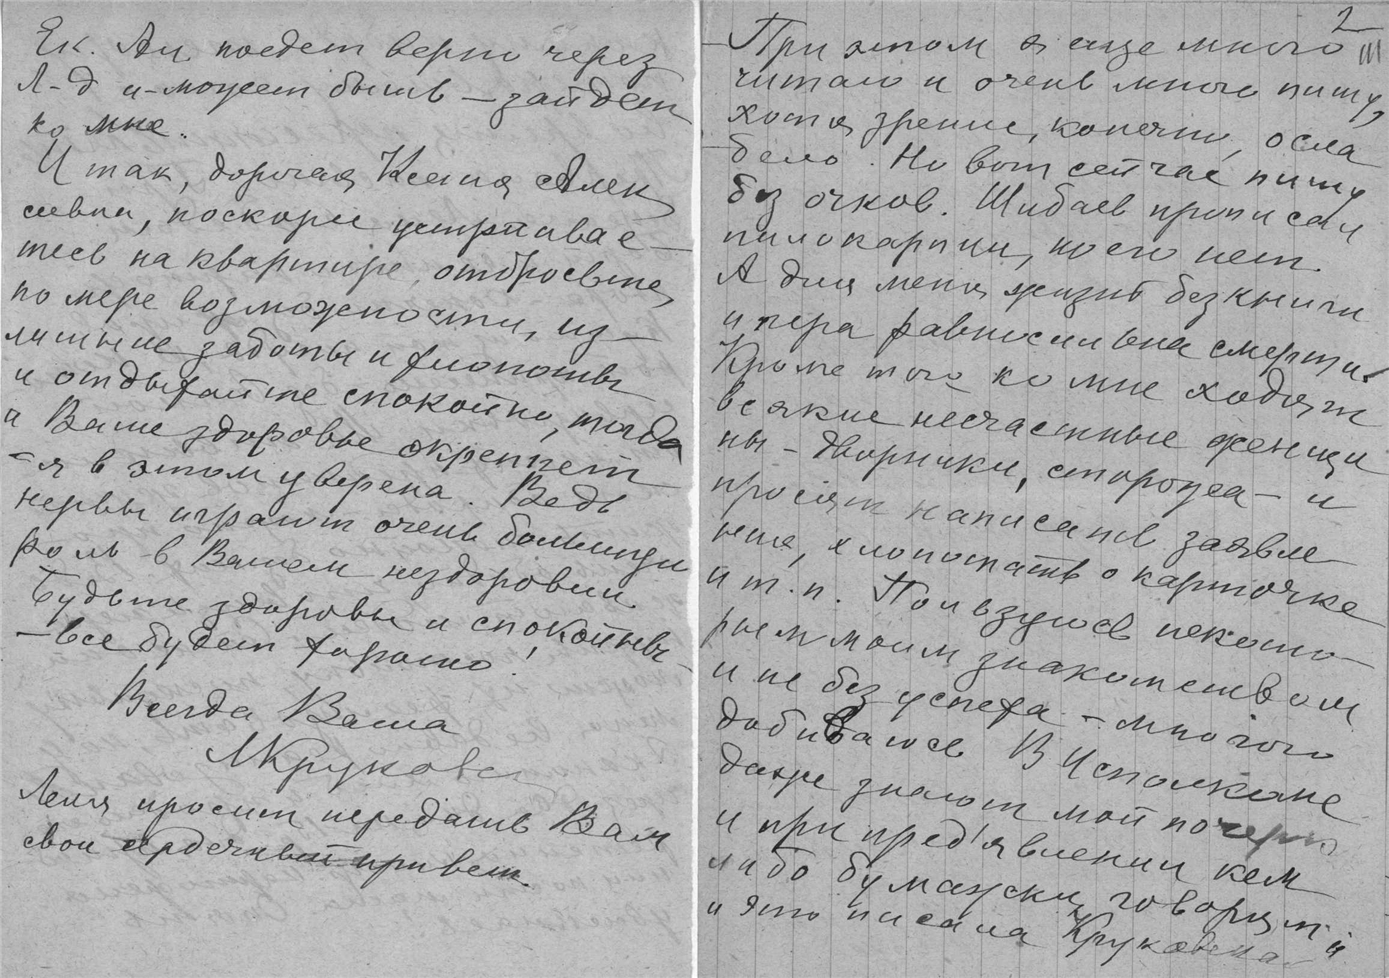 Ек. Ан поедет верно через
Л-д и-может быть – зайдет
ко мне.
Итак, дорогая Ксения Алек
сеевна, поскорее устраивае-
тесь на квартире, отбросьте,
по мере возможности, из-
лишние заботы и хлопоты
и отдыхайте спокойно, тогда
и Ваше здоровье окрепнет
– я в этом уверена. Ведь
нервы играют очень большую
роль в Вашем нездоровии
Будьте здоровы и спокойны
– все будет хорошо!
Всегда Ваша
МКруковс
Леля просит передать Вам
свой сердечный привет.
2
III
При этом я еще много
читаю и очень много пишу,
хотя зрение, конечно, осла
бело. Но вот сейчас пишу
без очков. Шибаев прописал
пилокарпин, но его нет.
А для меня жизнь без книги
и пера равносильна смерти.
Кроме того ко мне ходят
всякие несчастные женщи
ны – дворнички, сторожеа – и
просят написать заявле-
ние, хлопотать о карточке
и т.п. Пользуюсь некото-
рым моим знакомством
и не без успеха – многого
добиваюсь В Исполкоме
даже знают мой почерк
и при пред'явлении кем
либо бумажки, говорят „
и это писала Круковска